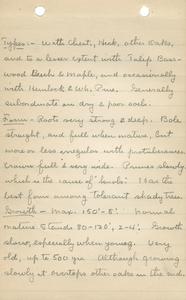 Types:- With Chest., Hick, other oaks,
and to a lesser extent with Tulip Bass-
wood Beech & Maple, and occasionally
with Hemlock & Wh. Pine. Generally
subordinate on dry & poor soils.
Form:- Roots very strong & deep. Bole
straight, and full when mature, but
more or less irregular with protuberances.
Crown full & very wide. Prunes slowly
which is the cause of knots. Has the
best form among tolerant shady trees.
Growth - Max. 150'-8'. Normal
mature. Stands 80-120', 2-4'. Growth
slow, especially when young. Very
old, up to 500 yrs. Although growing
slowly it overtops other oaks in the end.